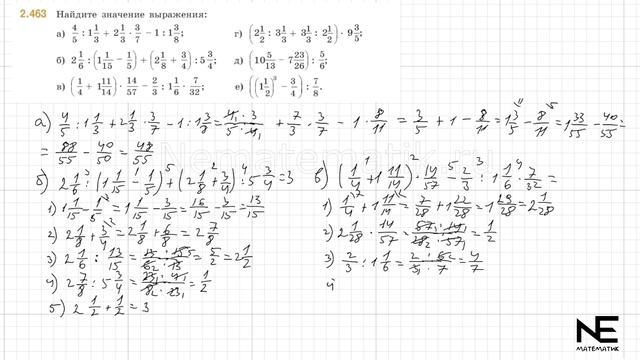 2.463 Найдите значение выражения:
а) 4/5 : 1 1/3 + 2 1/3 · 3/7 − 1 : 1 3/8;
г) (2 1/2 : 3 1/3 + 3 1/3 : 2 1/2) · 9 3/5;
б) 2 1/6 : (1 1/15 − 1/5) + (2 1/8 + 3/4) : 5 3/4;
д) (10 5/13 − 7 23/26) : 5/6;
в) (1/4 + 1 11/14) · 14/57 − 2/3 : 1 1/6 · 7/32;
е) ((1 1/2)³ − 3/4) : 7/8.
а) 4/5 : 1 1/3 + 2 1/3 · 3/7 − 1 : 1 3/8 = 4₁ · 3/5 · 4₁ + 7/3 · 3/7 − 1 · 8/11 = 3/5 + 1 − 8/11 = 1 3/5 − 8/11 = 1 33/55 − 40/55 =
= 88/55 − 40/50 = 48/55
б) 2 1/6 : (1 1/15 − 1/5) + (2 1/8 + 3/4) : 5 3/4 = 3
1) 1 1/15 − 1/5 = 1 1/15 − 3/15 = 16/15 − 3/15 = 13/15
2) 2 1/8 + 3/4 = 2 1/8 + 6/8 = 2 7/8
3) 2 1/6 : 13/15 = 13 · 15 5/6 2 · 13 = 5/2 = 2 1/2
4) 2 7/8 : 5 3/4 = 23₁ · 4₁/8₂ · 23₁ = 1/2
5) 2 1/2 + 1/2 = 3
в) (1/4 + 1 11/14) · 14/57 − 2/3 : 1 1/6 · 7/32 =
1) 1/4 + 1 11/14 = 7/28 + 1 22/28 = 1 29/28 = 2 1/28
2) 2 1/28 · 14/57 = 57₁ · 14₁/28₂ · 57₁ = 1/2
3) 2/3 : 1 1/6 = 2 · 6 2/3₁ · 7 = 4/7
4
Nematematik.com
NE
МАТЕМАТИК